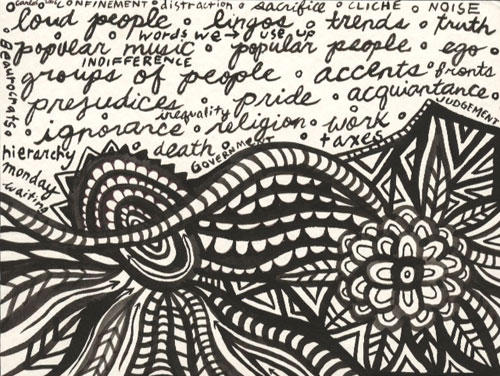 CONFINEMENT o distraction o sacrifice o CLICHE o NOISE
o loud people o lingos o trends o truth
words we → use up
popular music o popular people o ego o
INDIFFERENCE
groups of people o accents o fronts
prejudices o pride o acquaintance o
JUDGEMENT
inequality
ignorance o religion o work o
taxes
o death o
GOVERNMENT
Beaurocrats o
hierarchy
monday
waiting